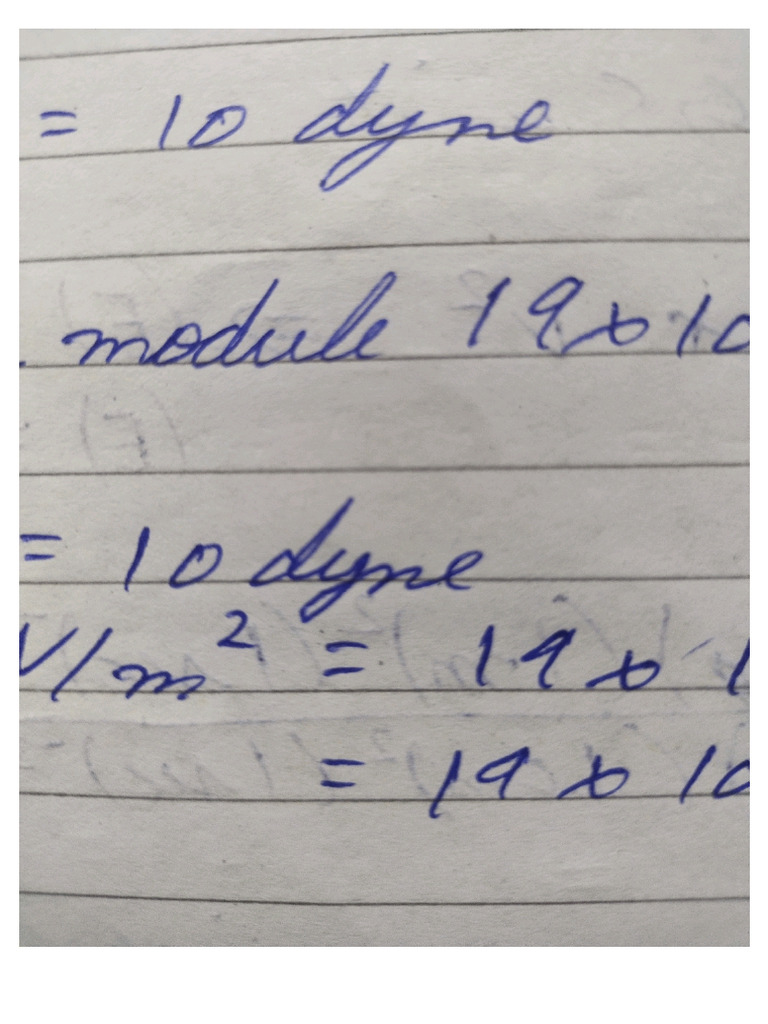 = 10 dyne
. module 19 x 10
= 10 dyne
N/m² = 19 x 1
= 19 x 10